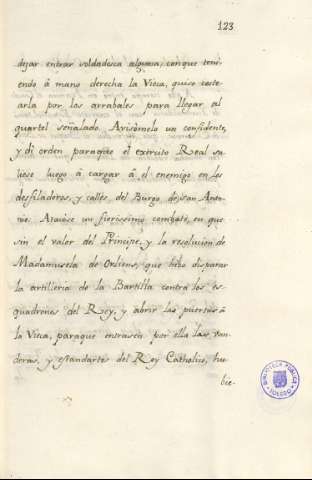 123
dejar entrar soldadesca alguna, con que teni-
endo á mano derecha la Vieca, quiso coste-
arla por los arrabales para llegar al
quartel señalado. Avisómelo un confidente,
y di orden paraque el exército Real sa-
liese luego á cargar á el enemigo en los
desfiladeros, y calles del Burgo de San Anto-
nio. Atacóse un fierissimo combate, en que
sin el valor del Principe, y la resolucion de
Madamusela de Orliens, que hizo disparar
la artilleria de la Bartilla contra los es-
quadrones del Rey, y abrir las puertas á
la Vieca, paraque entrasen por ella las van-
deras, y estandartes del Rey Catholico, hu-
bie-
BIBLIOTECA PÚBLICA
TOLEDO